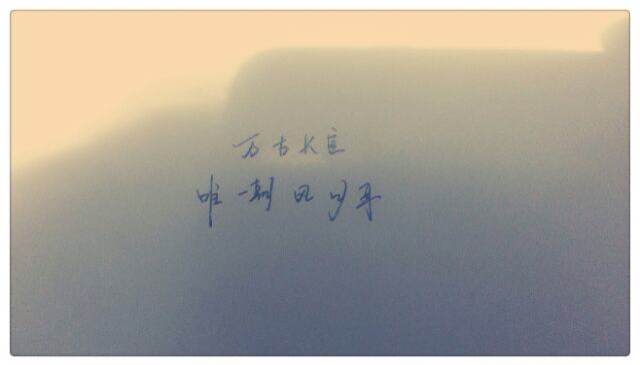 万古长空
唯一朝风月耳